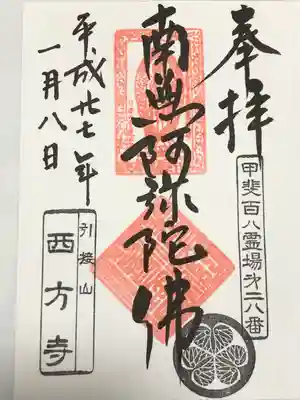 奉拝
甲斐百八霊場第二八番
南無阿弥陀佛
平成廿七年
一月八日
引接山
西方寺